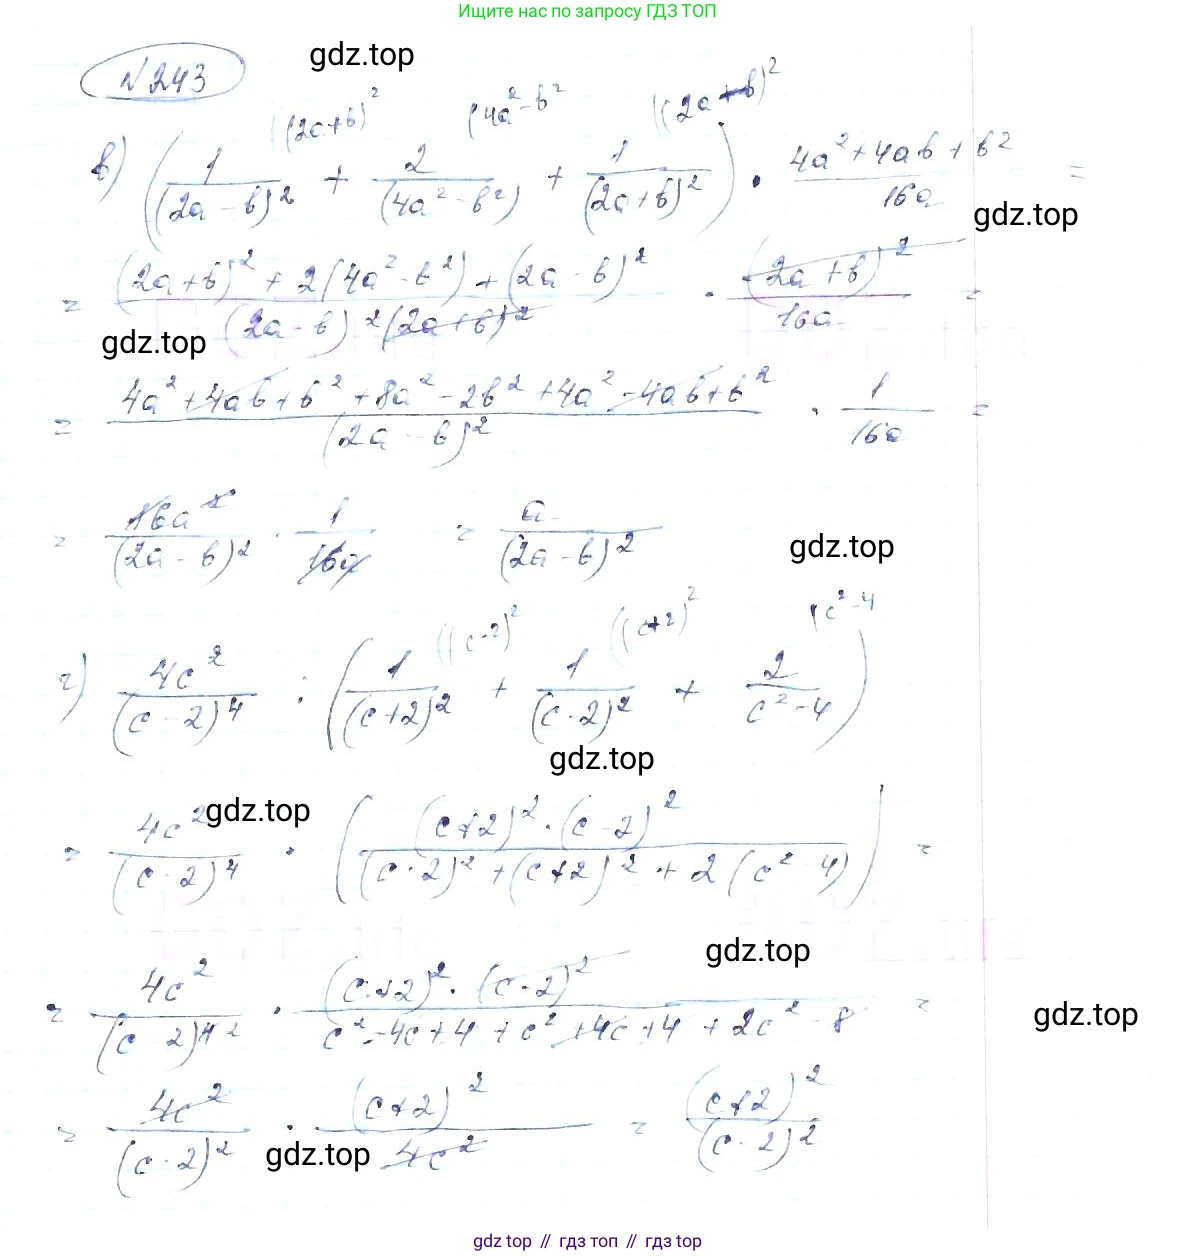 Ищите нас по запросу ГДЗ ТОП
gdz.top
№243
((2a+b)² (4a²-b² ((2a+b)²
в) (1/(2a-b)² + 2/(4a²-b²) + 1/(2a+b)²) · (4a²+4ab+b²)/16a =
gdz.top
= ((2a+b)²+2(4a²-b²)+(2a-b)²)/((2a-b)²(2a+b)²) · (2a+b)²/16a =
gdz.top
= (4a²+4ab+b²+8a²-2b²+4a²-4ab+b²)/(2a-b)² · 1/16a =
= 16a²/(2a-b)² · 1/16a = a/(2a-b)²
gdz.top
((c-2)² ((c+2)² (c²-4
г) 4c²/(c-2)⁴ : (1/(c+2)² + 1/(c-2)² + 2/(c²-4))
gdz.top
gdz.top
= 4c²/(c-2)⁴ · ((c+2)²·(c-2)²/((c-2)²+(c+2)²+2(c²-4))) =
gdz.top
= 4c²/(c-2)⁴² · (c+2)²·(c-2)²/(c²-4c+4+c²+4c+4+2c²-8) =
gdz.top
= 4c²/(c-2)² · (c+2)²/4c² = (c+2)²/(c-2)²
gdz.top
gdz top // гдз топ // гдз top